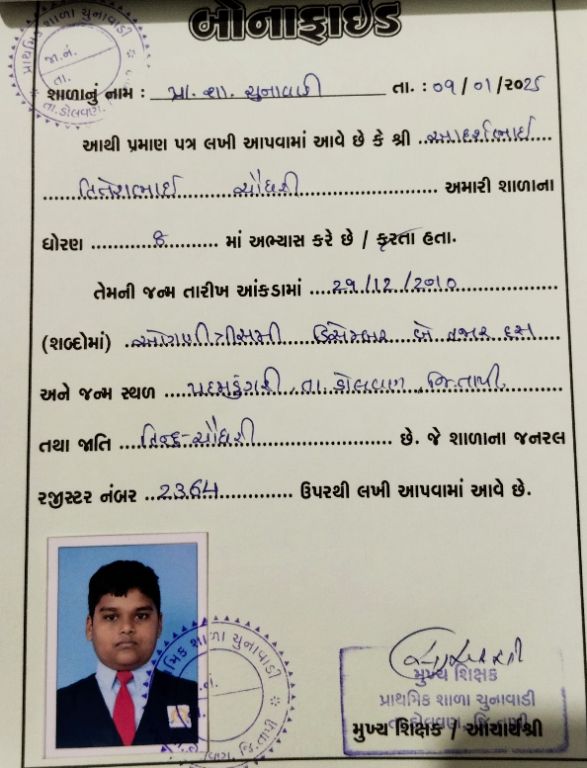 બોનાફાઈડ
પ્રાથમિક શાળા ચુનાવાડી
જા.નં.
તા.
તા. ડોલવણ,
શાળાનું નામ : પ્રા. શા. ચુનાવાડી તા. : ०१/૦1/૨૦25
આથી પ્રમાણ પત્ર લખી આપવામાં આવે છે કે શ્રી આદર્શભાઈ
હિતેશભાઈ ચૌધરી અમારી શાળાના
ધોરણ 8 માં અભ્યાસ કરે છે / કરતા હતા.
તેમની જન્મ તારીખ આંકડામાં 29/12/2010
(શબ્દોમાં) ઓગણીત્રીસમી ડિસેમ્બર બે હજાર દસ
અને જન્મ સ્થળ પદમડુંગરી, તા. ડોલવણ, જિ.તાપી.
તથા જાતિ હિન્દુ-ચૌધરી છે. જે શાળાના જનરલ
રજીસ્ટર નંબર 2364 ઉપરથી લખી આપવામાં આવે છે.
શાળા ચુનાવાડી
જિ. તાપી
મુખ્ય શિક્ષક
પ્રાથમિક શાળા ચુનાવાડી
તા. ડોલવણ, જિ. તાપી
મુખ્ય શિક્ષક / આચાર્યશ્રી